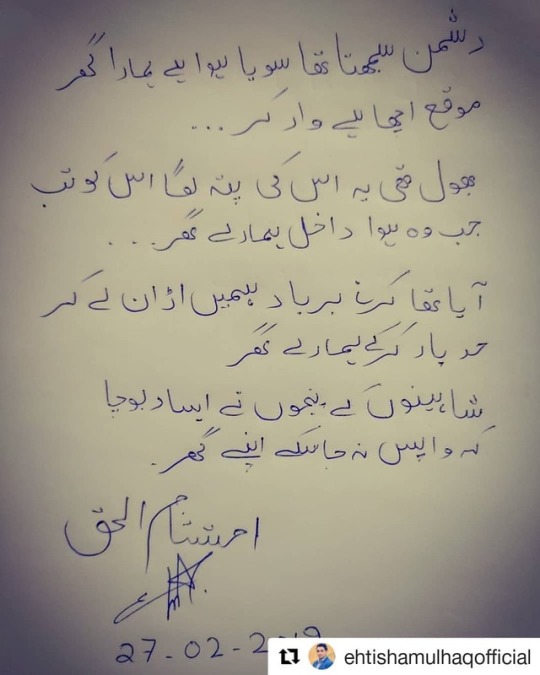 دشمن سمجھتا تھا سویا ہوا ہے ہمارا گھر
موقع اچھا ہے وار کر ...
بھول تھی یہ اس کی پتہ لگا اس کو تب
جب وہ ہوا داخل ہمارے گھر ...
آیا تھا کرنے برباد ہمیں اڑان لے کر
حد پار کرکے ہمارے گھر
شاہینوں کے پنجوں نے ایسا دبوچا
کہ واپس نہ جا سکے اپنے گھر.
احتشام الحق
27-02-2019
ehtishamulhaqofficial